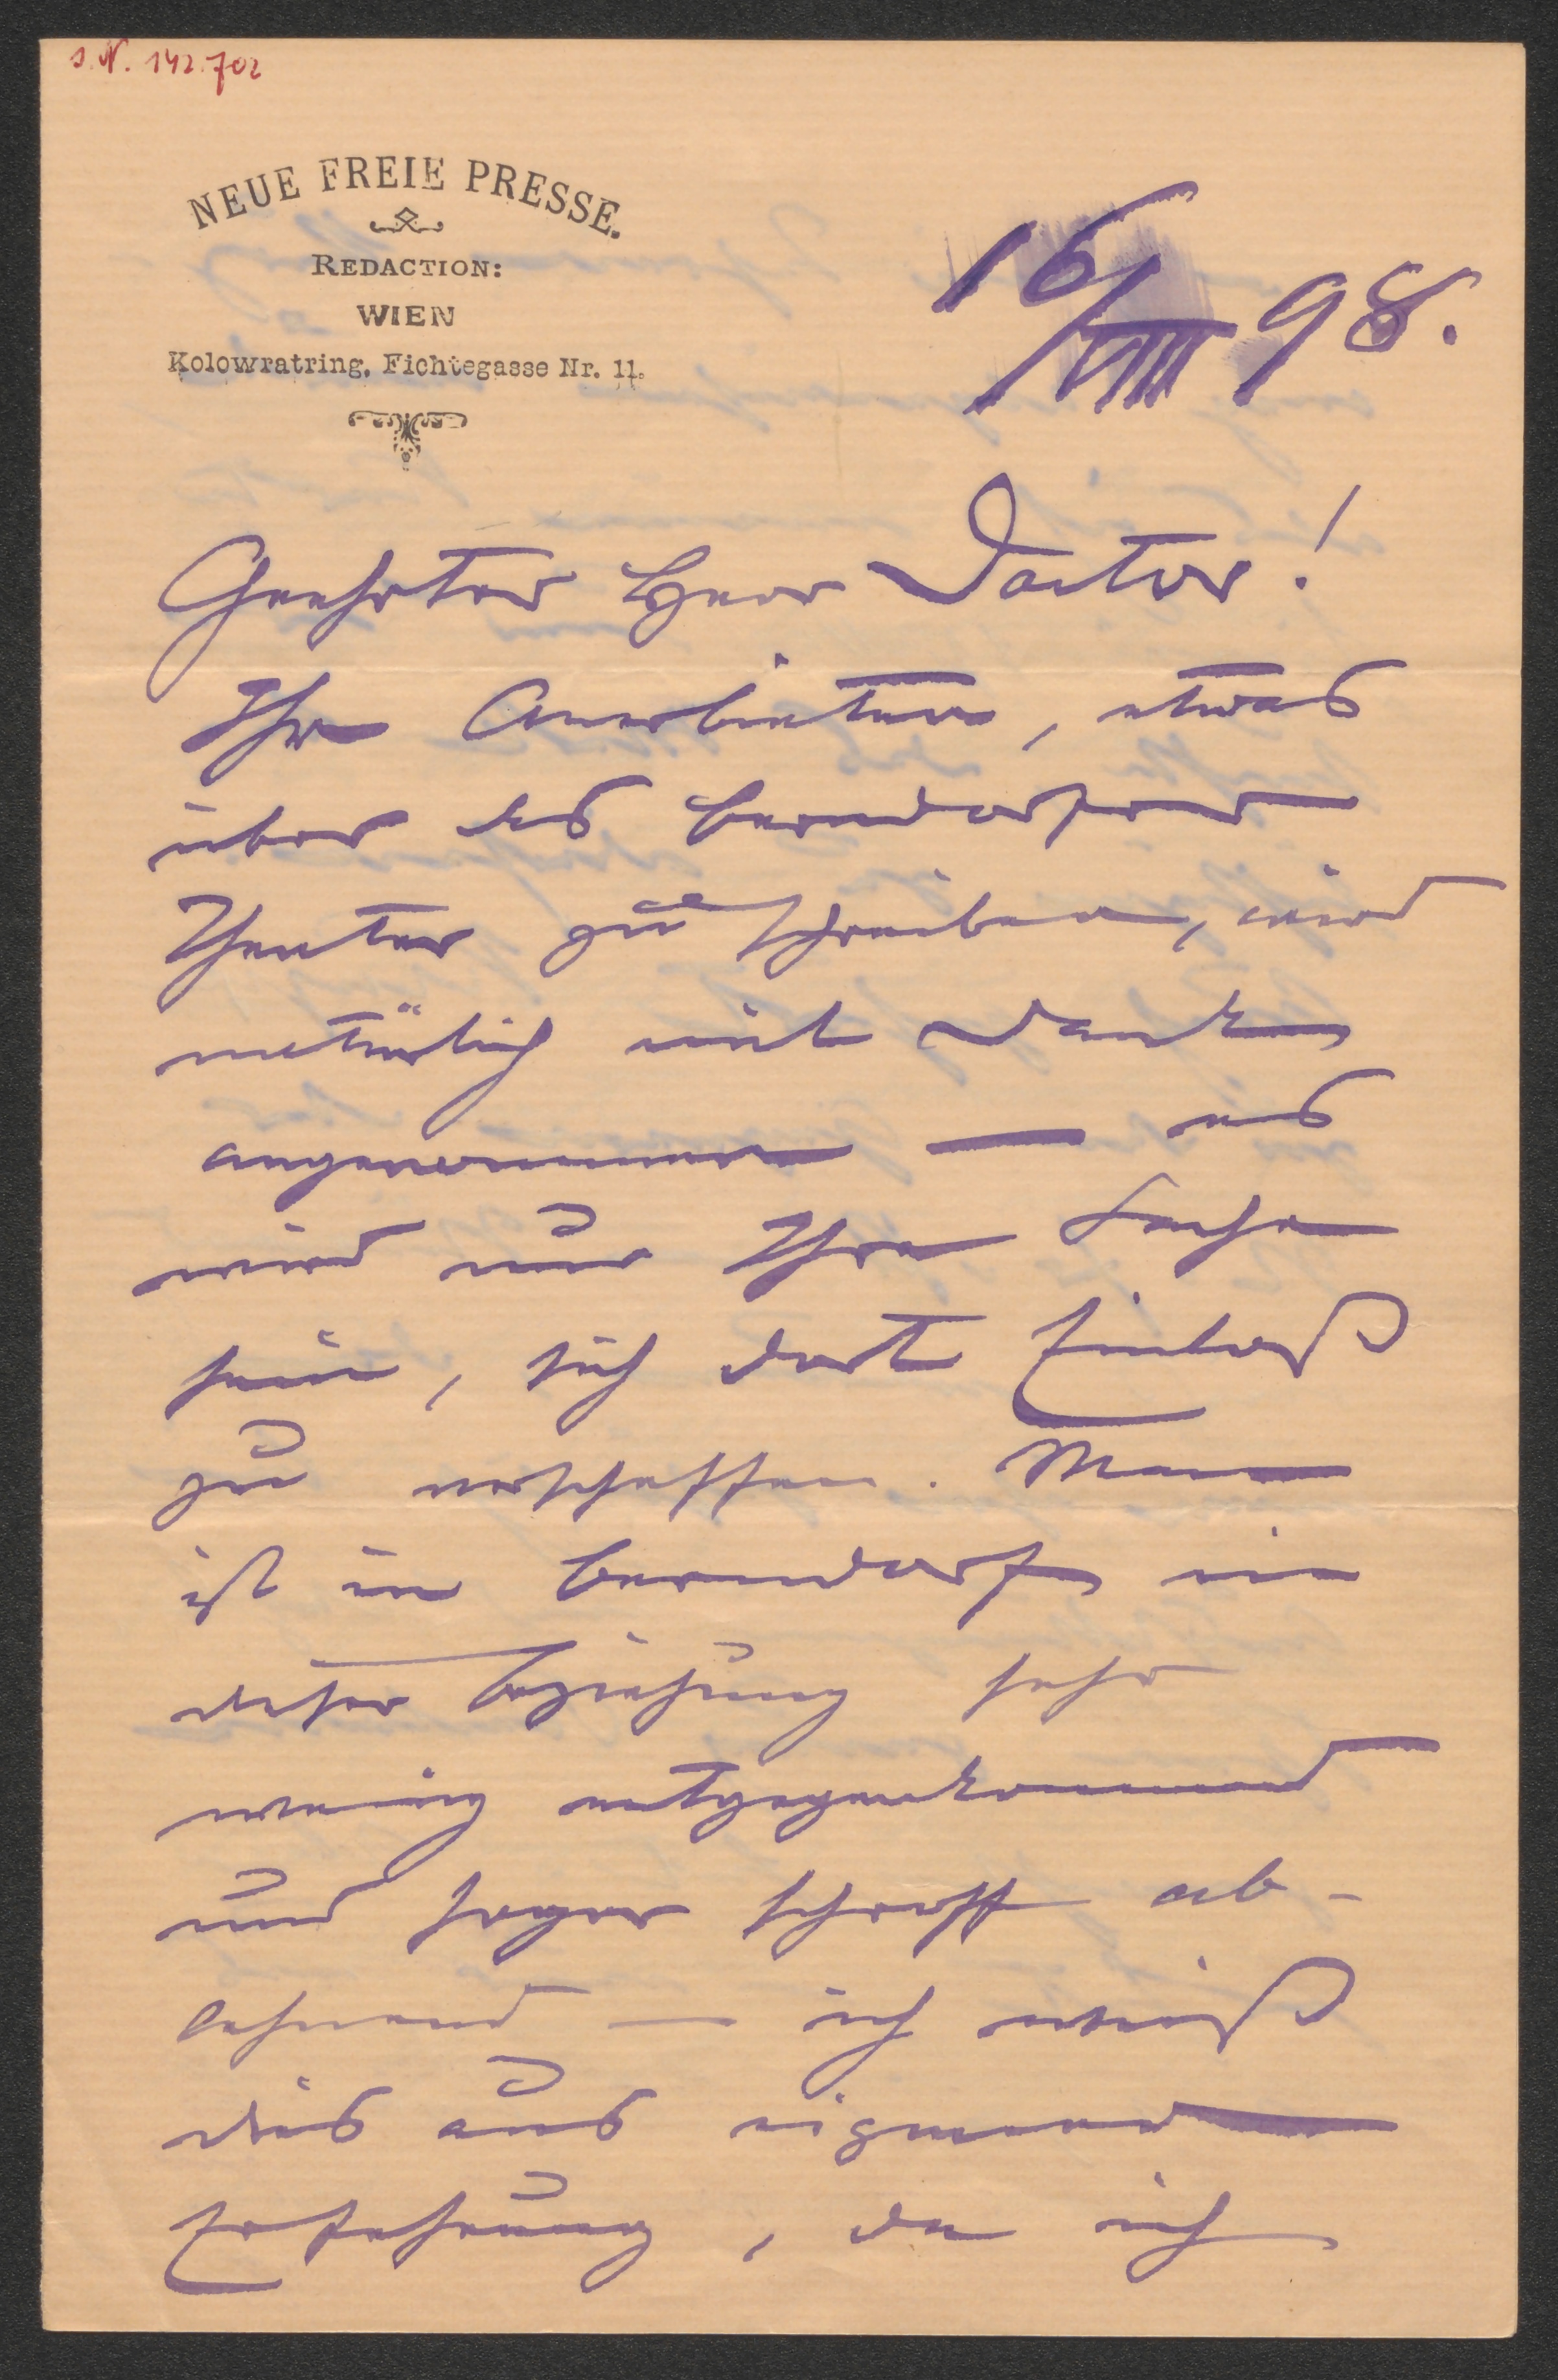 J.N. 142.702
NEUE FREIE PRESSE.
REDACTION:
WIEN
Kolowratring, Fichtegasse Nr. 11.
16/VIII 98.
Geehrter Herr Doctor!
Ihr Anerbieten, etwas
über das Berndorfer
Theater zu schreiben, wird
natürlich mit Dank
angenommen — es
wird nur Ihre Sache
sein, sich dort Einlaß
zu verschaffen. Man
ist in Berndorf in
dieser Beziehung sehr
wenig entgegenkommend
und sogar schroff ab-
lehnend — ich weiß
dies aus eigener
Erfahrung, da ich